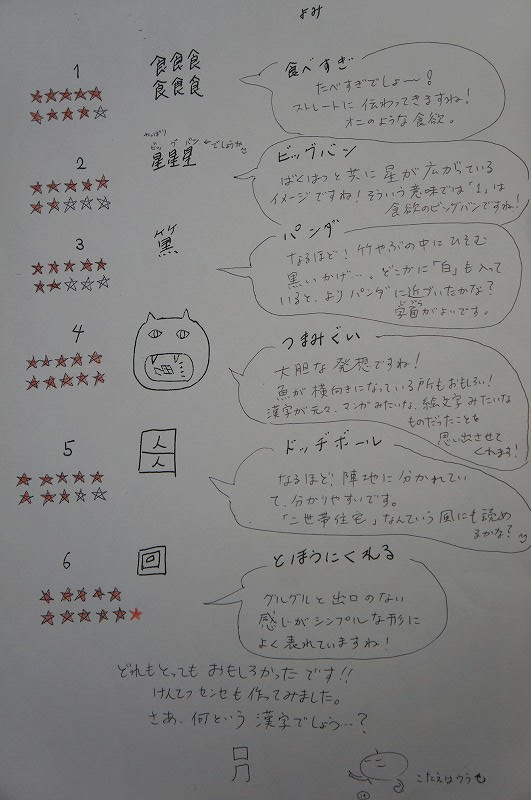 よみ
1
食食食
食食食
食べすぎ
たべすぎでしょ〜!
ストレートに伝わってきますね!
オニのような食欲。
2
やっぱり
ビッグバン
星星星
←でしょうか
ビッグバン
ばくはつと共に星が広がっている
イメージですね!そういう意味では「1」は
食欲のビッグバンですね!
3
パンダ
なるほど!竹やぶの中にひそむ
黒いかげ…。どこかに「白」も入って
いると、よりパンダに近づいたかな?
字面がよいです。
じづら
4
つまみぐい
大胆な発想ですね!
魚が横向きになっている所もおもしろい!
漢字が元々、マンガみたいな、絵文字みたいな
ものだったことを
思い出させて
くれます!
5
人
人
ドッヂボール
なるほど!陣地に分かれてい
て、分かりやすいです。
「二世帯住宅」なんていう風にも読め
るかな?
6
回
とほうにくれる
グルグルと出口のない
感じがシンプルな形に
よく表れていますね!
どれもとってもおもしろかったです!!
けんてつセンセも作ってみました。
さあ、何という漢字でしょう…?
こたえはうらも